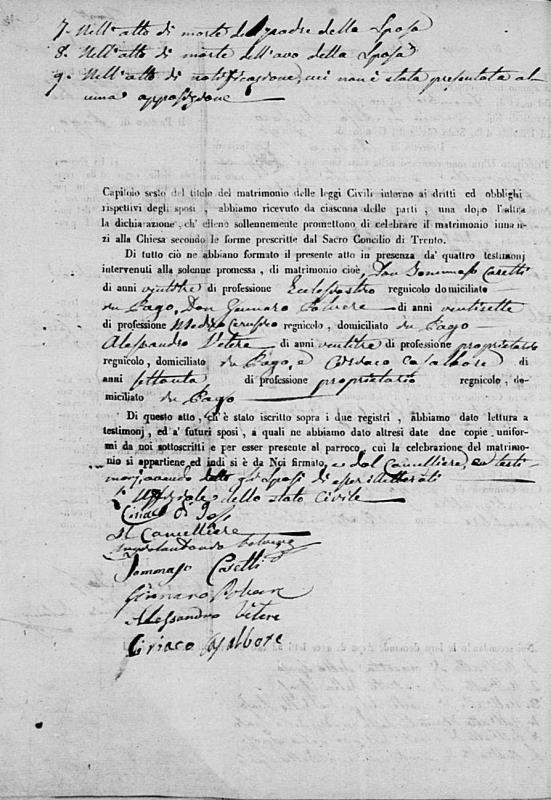 7. Nell'atto di morte del padre della Sposa
8. Nell'atto di morte dell'avo della Sposa
9. Nell'atto di notificazione, cui non è stata presentata al
una opposizione
Capitolo sesto del titolo del matrimonio delle leggi Civili intorno ai dritti ed obblighi
rispettivi degli sposi, abbiamo ricevuto da ciascuna delle parti, una dopo l'altra
la dichiarazione, ch'elleno sollennemente promettono di celebrare il matrimonio innan-
zi alla Chiesa secondo le forme prescritte dal Sacro Concilio di Trento.
Di tutto ciò ne abbiamo formato il presente atto in presenza da' quattro testimonj
intervenuti alla solenne promessa, di matrimonio cioè, Don Tommaso Caselli
di anni ventitre di professione regnicolo domiciliato
in Pago, Don Gennaro Polvere di anni ventisette
di professione Medico Cerusico regnicolo, domiciliato in Pago
Alessandro Vetere di anni ventitre di professione proprietario
regnicolo, domiciliato in Pago, e Ciriaco Casalbore di
anni settanta di professione proprietario regnicolo, do-
miciliato in Pago
Di questo atto, ch'è stato iscritto sopra i due registri, abbiamo dato lettura a
testimonj, ed a' futuri sposi, a quali ne abbiamo dato altresì date due copie, unifor-
mi da noi sottoscritti e per esser presente al parroco, cui la celebrazione del matrimo-
nio si appartiene ed indi si è da Noi firmato, e dal Cancelliere, e testi-
monj, avendo detto gli Sposi di essere illetterati
L'Uffiziale dello stato Civile
Ciriaco
Il Cancelliere
Tommaso Caselli
Gennaro Polvere
Alessandro Vetere
Ciriaco Casalbore